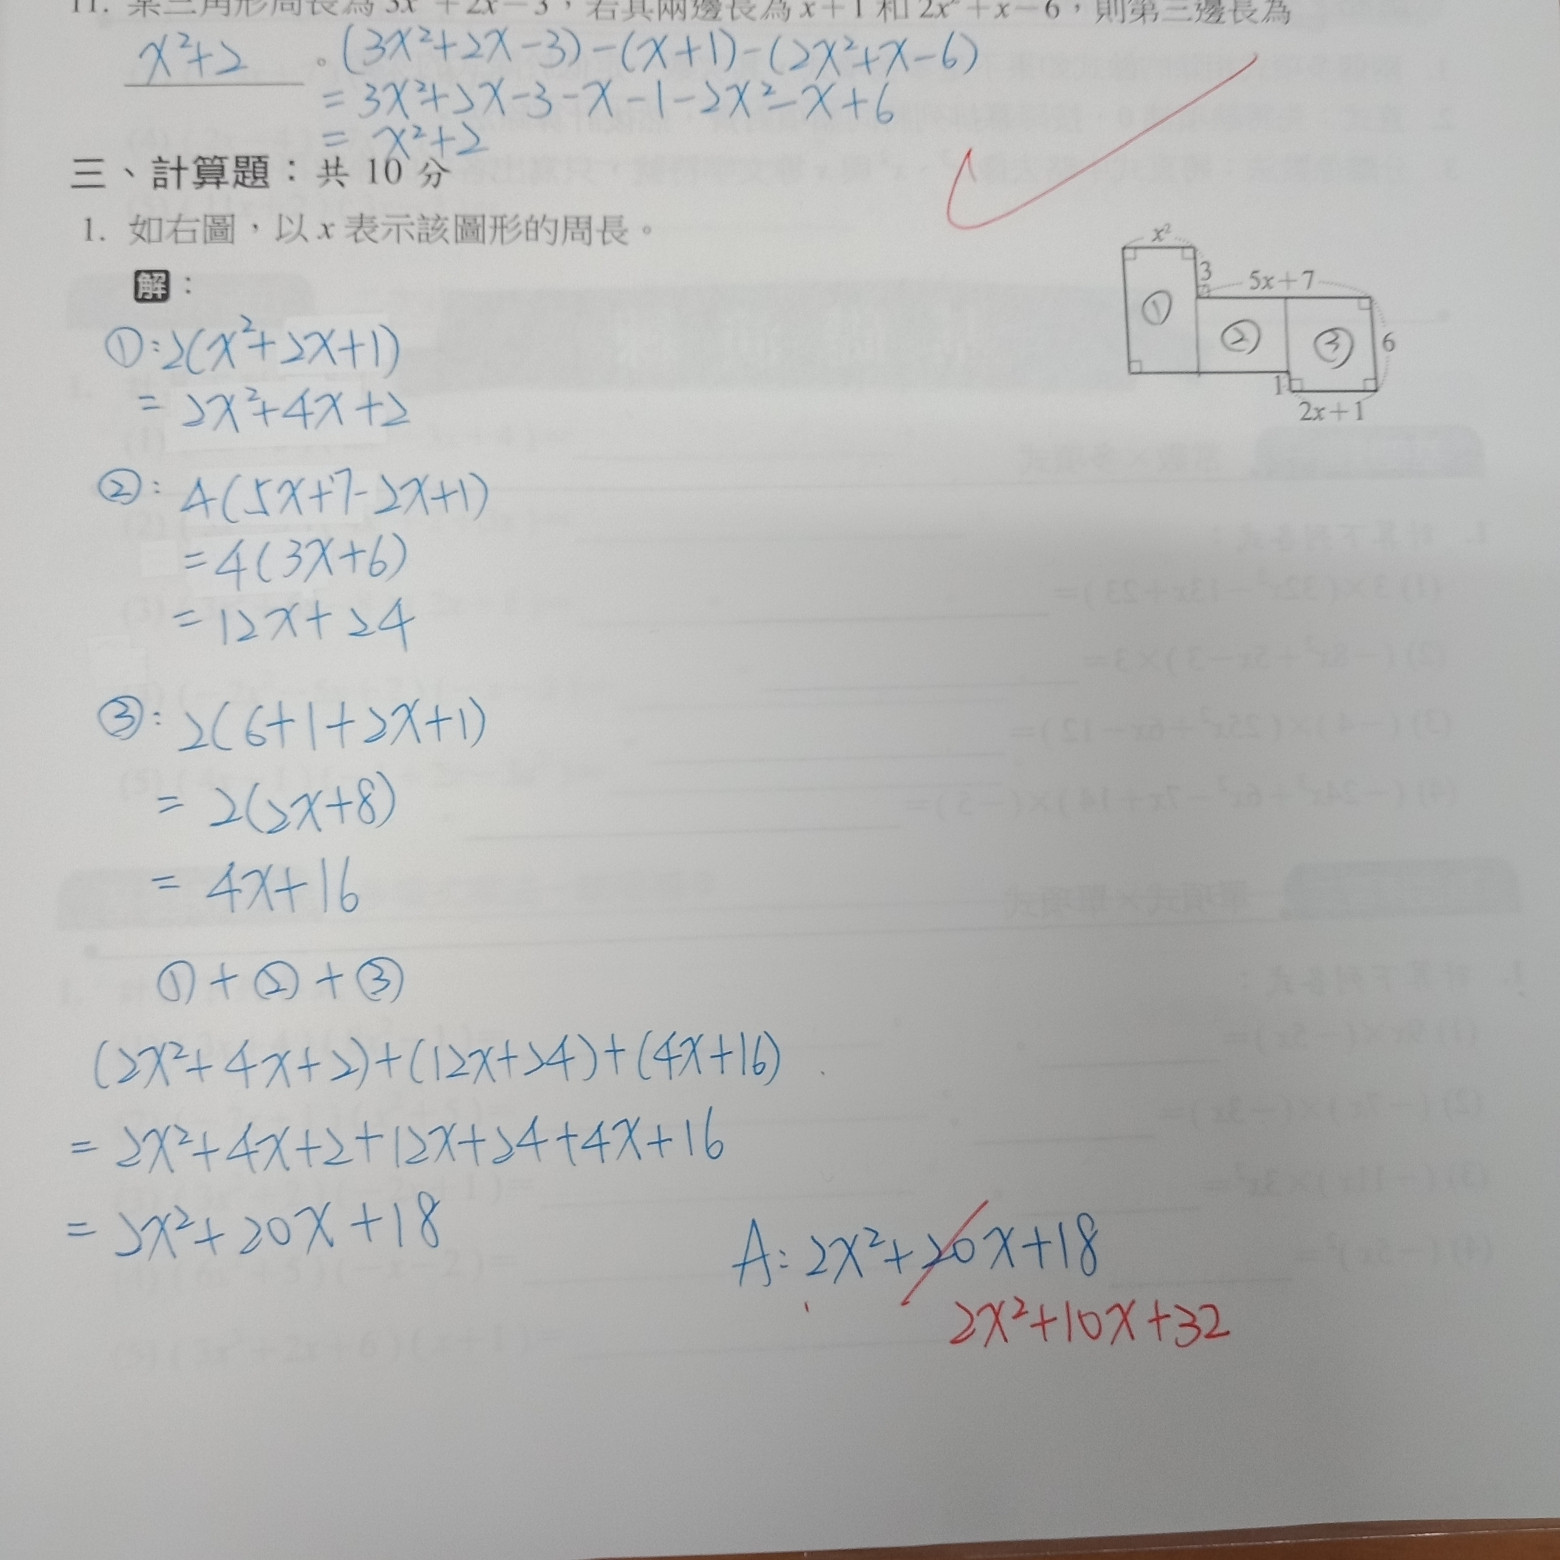 11. 某三角形周長為 3x²+2x-3,若其兩邊長為 x+1 和 2x²+x-6,則第三邊長為
x²+2 。(3x²+2x-3)-(x+1)-(2x²+x-6)
=3x²+2x-3-x-1-2x²-x+6
= x²+2
三、計算題:共 10 分
1. 如右圖,以 x 表示該圖形的周長。
x²
3
5x+7
①
②
③
6
1
2x+1
解:
①:2(x²+2x+1)
=2x²+4x+2
②:4(5x+7-2x+1)
=4(3x+6)
=12x+24
③:2(6+1+2x+1)
= 2(2x+8)
= 4x+16
①+②+③
(2x²+4x+2)+(12x+24)+(4x+16)
=2x²+4x+2+12x+24+4x+16
=2x²+20x+18
A:2x²+20x+18
2x²+10x+32